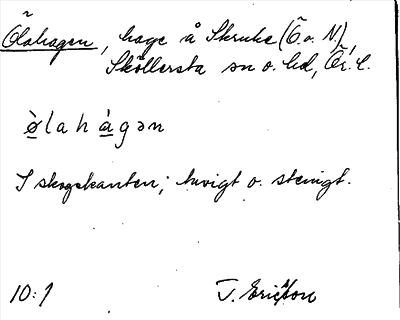 Ölahagen, hage å Skruke (Ö. o. N.),
Sköllersta sn o. hd, Ör. l.
ø̀lahágən
I skogskanten; kuvigt o. stenigt.
10:1
T. Ericsson